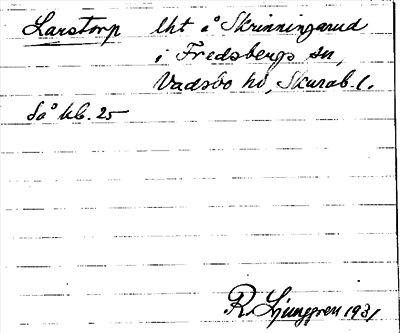 Larstorp lht å Skrinningarud
i Fredsbergs sn,
Vadsbo hd, Skarab. l.
Så kb. 25
R. Ljunggren 1931